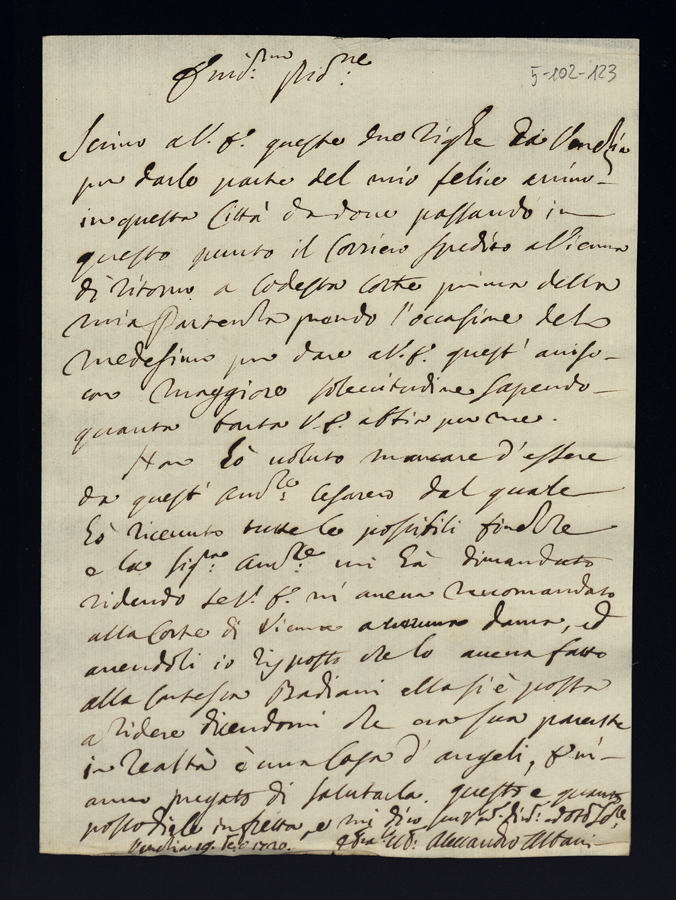 5-102-123
Scrivo a V. E. queste due righe da Venezia
per darle parte del mio felice arrivo
in questa Città da dove passando in
questo punto il Corriero spedito a Vienna
di ritorno a codesta Corte prima della
mia Partenza prendo l'occasione del
medesimo per dare a V. E. quest' aviso
con maggiore solecitudine sapendo
quanta bontà V. E. abbia per me.
Non hò voluto mancare d'essere
da quest' Amb.re Cesareo dal quale
hò ricevuto tutte le possibili finezze
e la Sig.ra Amb.re mi hà dimandato
ridendo se V. E. m' aveva raccomandato
alla Corte di Vienna a nessuna Dama, ed
avendoli io risposto che lo aveva fatto
alla Contessa Badiani ella si è posta
a ridere dicendomi che era sua parente
in realtà è una Casa d' angeli, e m'
anno pregato di salutarla. questo e quanto
posso dirle in fretta, e mi dico
Venezia 19. 1720. Alessandro Albani